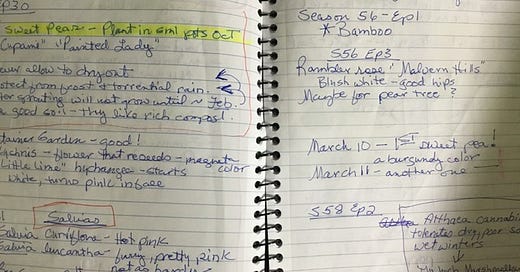 EP30
Sweet Peas - Plant in sml pots Oct
Cupani" "Painted Lady"
ever allow to dry out
otect from frost & torrential rain.
ter sprouting will not grow until ~ Feb.
a good soil - They like rich compost.
tainer Garden - good!
Lychnis - flower that reseeds - magenta color
Little Lime" hydrangea - starts
white, turns pink in face
Salvias
Salvia Curviflora - Hot pink
Salvia leucantha - furry, pretty, pink
not as hardy
Season 56 - Ep1
* Bamboo
S56 Ep3
Rambler rose "Malvern Hills"
Blush white - good hips
Maybe for pear tree?
March 10 - 1st sweet pea!
a burgundy color
March 11 - another one
S58 Ep2
Althaea cannabin
tolerates dry, poor so
wet winters